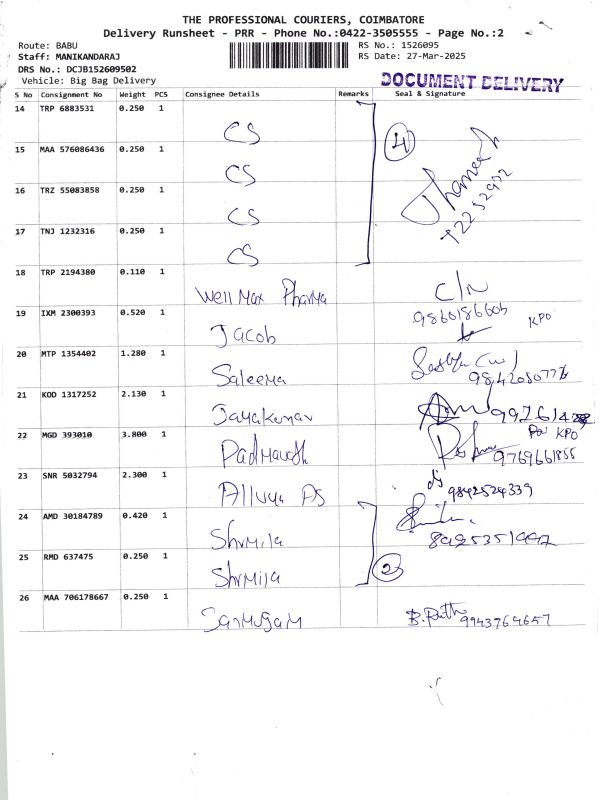 THE PROFESSIONAL COURIERS, COIMBATORE
Delivery Runsheet - PRR - Phone No.:0422-3505555 - Page No.:2
Route: BABU
Staff: MANIKANDARAJ
DRS No.: DCJB152609502
Vehicle: Big Bag Delivery
RS No.: 1526095
RS Date: 27-Mar-2025
DOCUMENT DELIVERY
S No Consignment No Weight PCS Consignee Details Remarks Seal & Signature
14 TRP 6883531 0.250 1 CS 4
15 MAA 576086436 0.250 1 CS
16 TRZ 55083858 0.250 1 CS
17 TNJ 1232316 0.250 1 CS
18 TRP 2194380 0.110 1 Well Max Pharma C/N
19 IXM 2300393 0.520 1 Jacob KPO
20 MTP 1354402 1.280 1 Saleema
21 KOD 1317252 2.130 1 Jayakumar
22 MGD 393010 3.800 1 KPO 9769661855
23 SNR 5032794 2.300 1 9842524339
24 AMD 30184789 0.420 1 Shrmila
25 RMD 637475 0.250 1 Shrmila 2
26 MAA 706178667 0.250 1 Sanmugam 9943764657